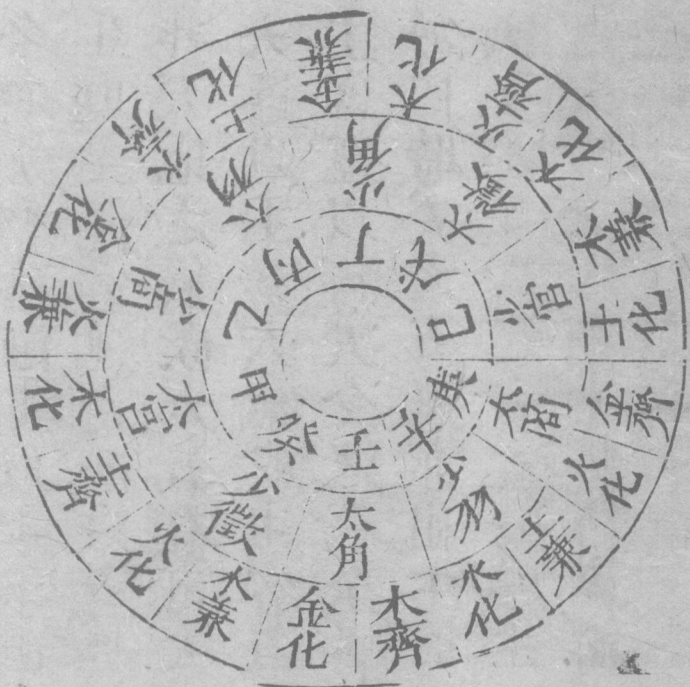 甲
乙
丙
丁
戊
己
庚
辛
壬
癸
大宮
少商
大羽
少角
大徵
少宮
太商
少羽
太角
少徵
土齊
木化
火兼
金化
水齊
土化
金兼
木化
火齊
水化
木兼
土化
金齊
火化
土兼
水化
木齊
金化
水兼
火化